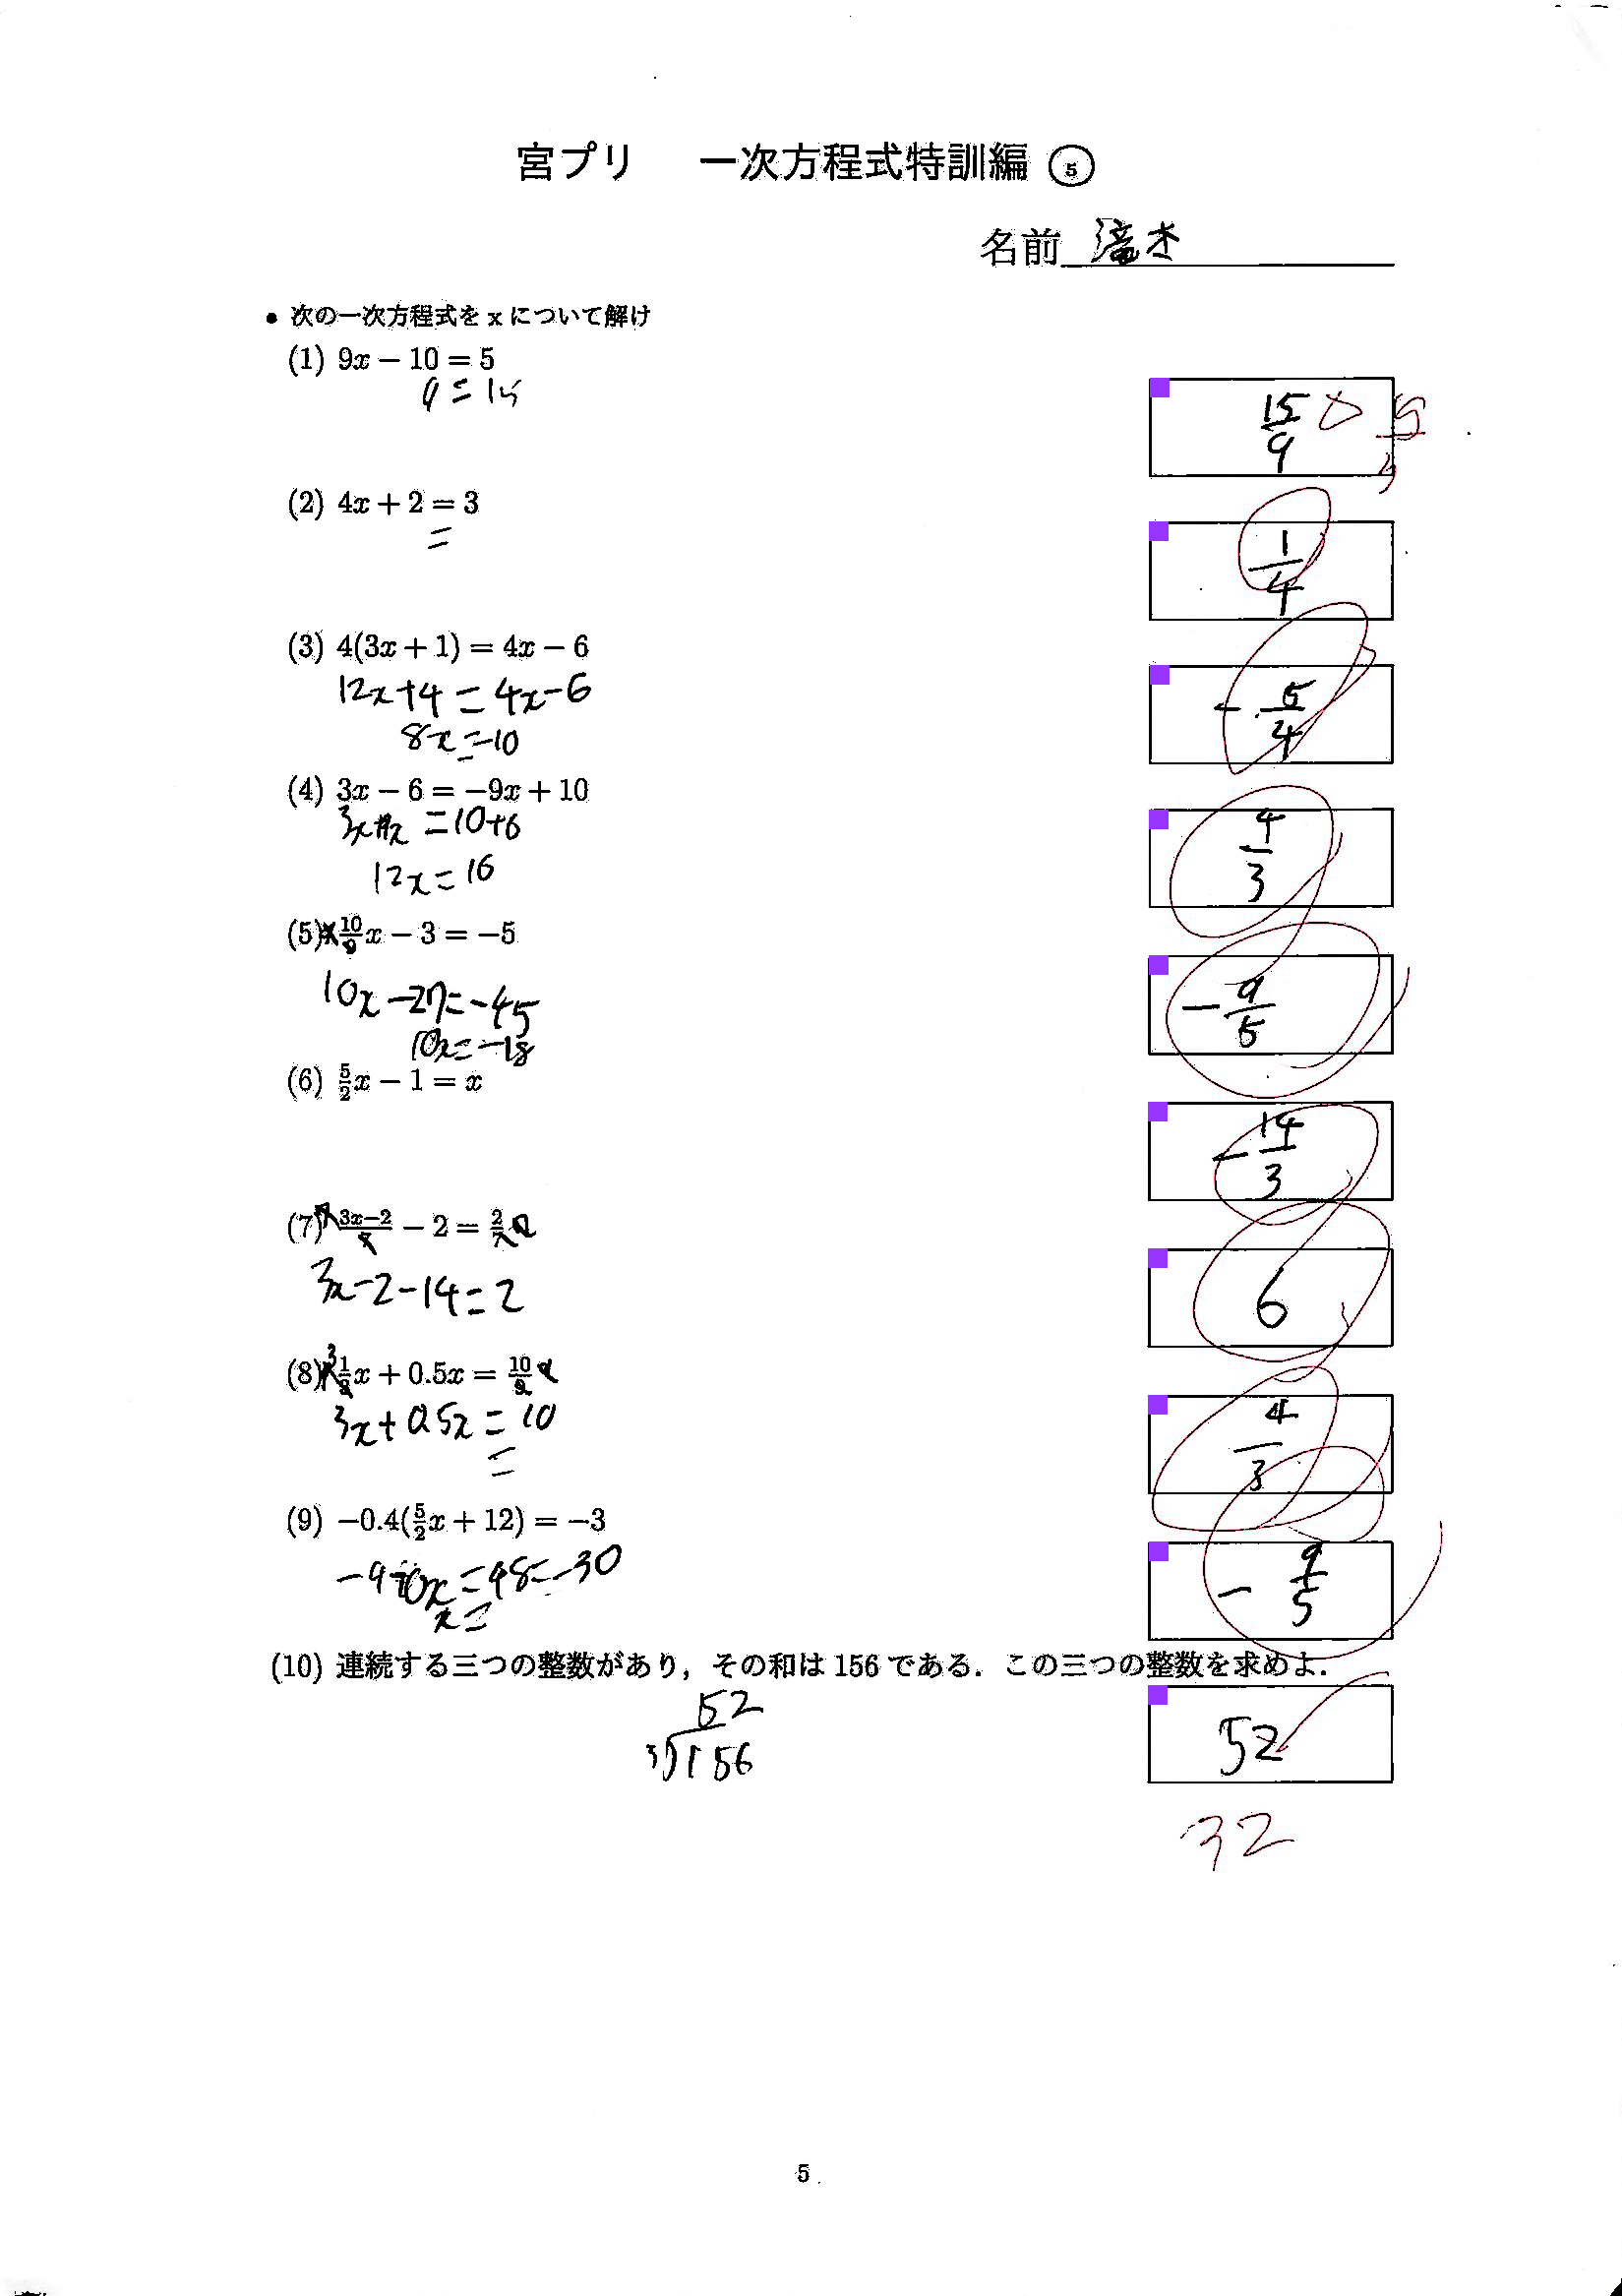 宮プリ 一次方程式特訓編 ⑤
名前 滝本
• 次の一次方程式を x について解け
(1) 9x − 10 = 5
9 = 15
15/9
5
(2) 4x + 2 = 3
=
1/4
(3) 4(3x + 1) = 4x − 6
12x+4 = 4x−6
8x = −10
− 5/4
(4) 3x − 6 = −9x + 10
= 10+6
12x = 16
4/3
(5) 10/9 x − 3 = −5
10x − 27 = −45
10x = −18
− 9/5
(6) 5/2 x − 1 = x
− 14/3
(7) 3x−2/7 − 2 = 2/7
3x − 2 − 14 = 2
6
(8) 1/3 x + 0.5x = 10/9
3x + 0.5x = 10
=
4/3
(9) −0.4(5/2 x + 12) = −3
x =
− 9/5
(10) 連続する三つの整数があり，その和は 156 である．この三つの整数を求めよ．
52
3)156
52
32
5